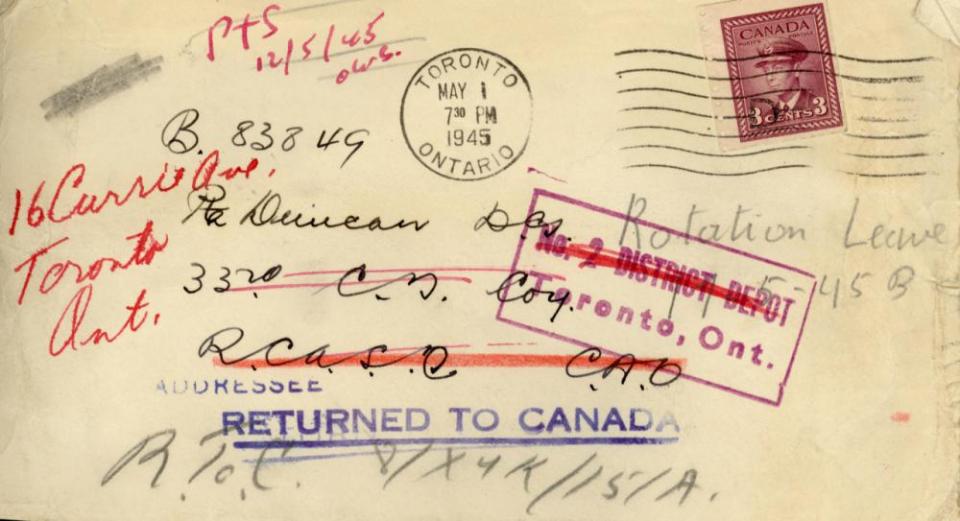 PTS
12/5/45
TORONTO
MAY 1
7 30 PM
1945
ONTARIO
CANADA
3 CENTS 3
B. 83849
16 Currie Ave.
Toronto
Ont.
Pte Duncan D.G.
Rotation Leave
No. 2 DISTRICT DEPOT
Toronto, Ont.
11-5-45 B
33rd C.D. Coy.
R.C.A.S.C C.A.O
ADDRESSEE
RETURNED TO CANADA
R.T.C. 8/X4K/15/A.